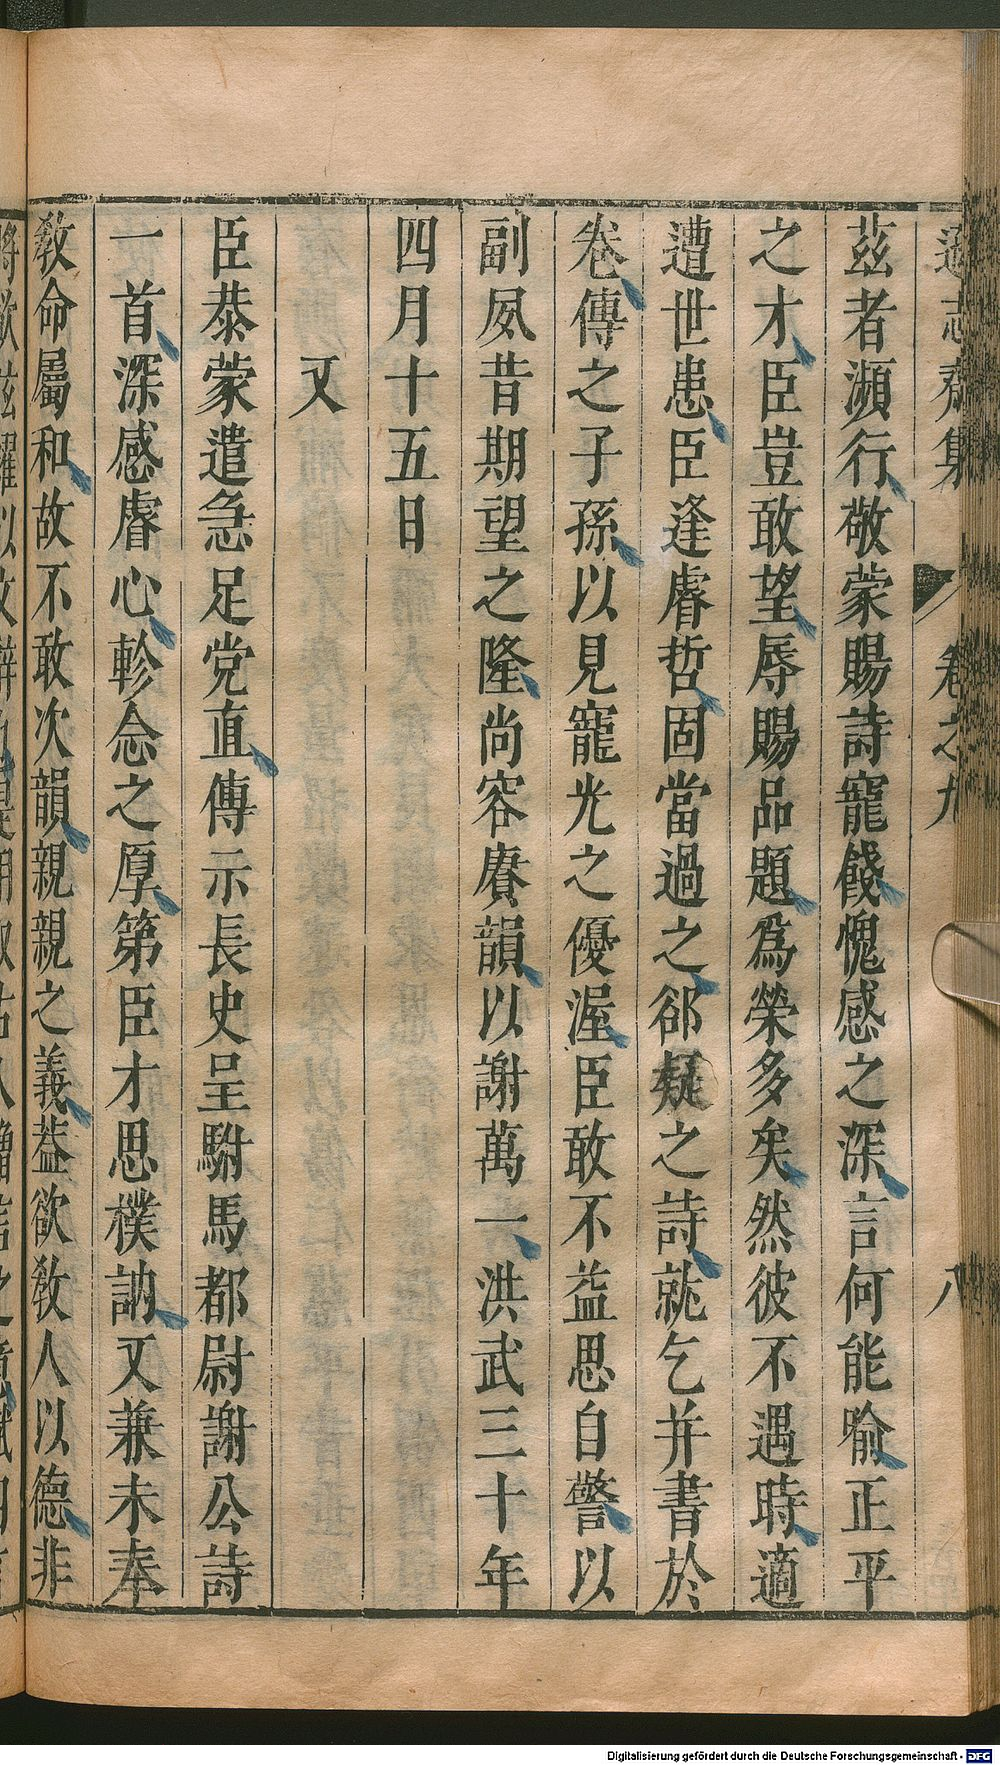 遜志齋集 卷之九 八
茲者瀕行敬蒙賜詩寵餞愧感之深言何能喻正平
之才臣豈敢望辱賜品題爲榮多矣然彼不遇時適
遭世患臣逢睿哲固當過之郤疑之詩就乞并書於
卷傳之子孫以見寵光之優渥臣敢不益思自警以
副夙昔期望之隆尚容賡韻以謝萬一洪武三十年
四月十五日
又
臣恭蒙遣急足党直傳示長史呈駙馬都尉謝公詩
一首深感睿心軫念之厚第臣才思樸訥又兼未奉
敎命屬和故不敢次韻親親之義葢欲敎人以德非
Digitalisierung gefördert durch die Deutsche Forschungsgemeinschaft - DFG